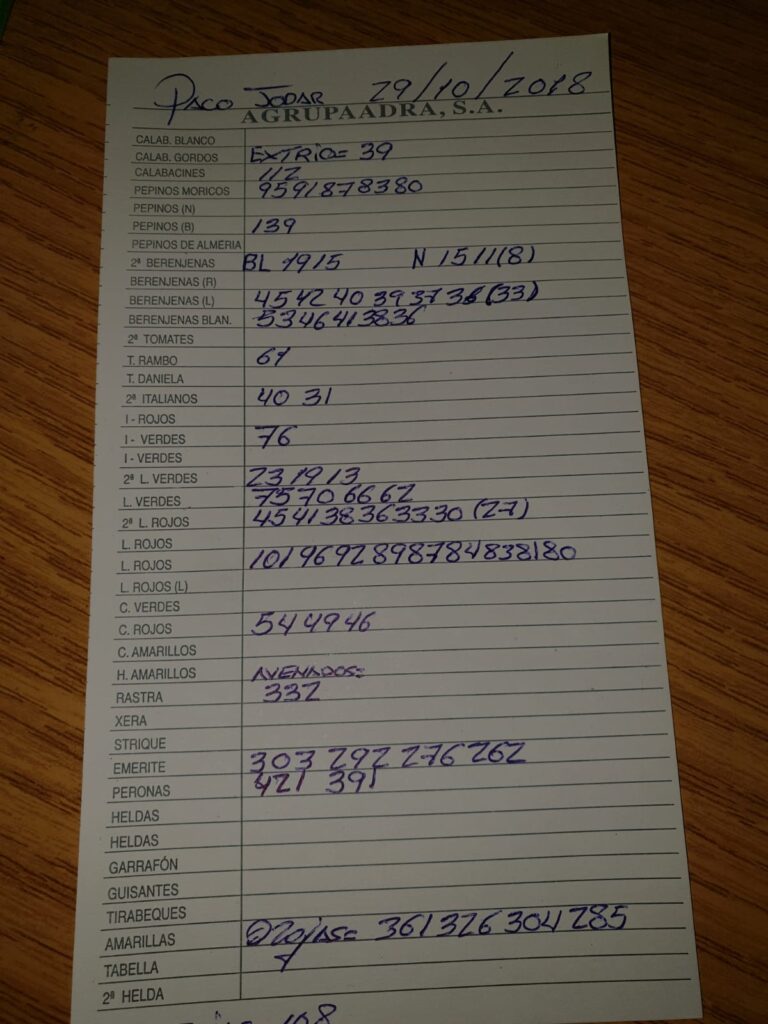 PACO JODAR 29/10/2018
AGRUPAADRA, S.A.
CALAB. BLANCO
CALAB. GORDOS EXTRIO= 39
CALABACINES 112
PEPINOS MORICOS 9591878380
PEPINOS (N)
PEPINOS (B) 139
PEPINOS DE ALMERIA
2ª BERENJENAS BL 1915 N 1511(8)
BERENJENAS (R)
BERENJENAS (L) 454240393736(33)
BERENJENAS BLAN. 5346413836
2ª TOMATES
T. RAMBO 61
T. DANIELA
2ª ITALIANOS 40 31
I - ROJOS
I - VERDES 76
I - VERDES
2ª L. VERDES 231913
L. VERDES 75706662
2ª L. ROJOS 454138363330 (27)
L. ROJOS
L. ROJOS 1019692898784838180
L. ROJOS (L)
C. VERDES
C. ROJOS 544946
C. AMARILLOS
H. AMARILLOS AVENADOS=
RASTRA 332
XERA
STRIQUE
EMERITE 303 292 276 262
PERONAS 421 391
HELDAS
HELDAS
GARRAFÓN
GUISANTES
TIRABEQUES
AMARILLAS 361326304285
TABELLA
2ª HELDA
108